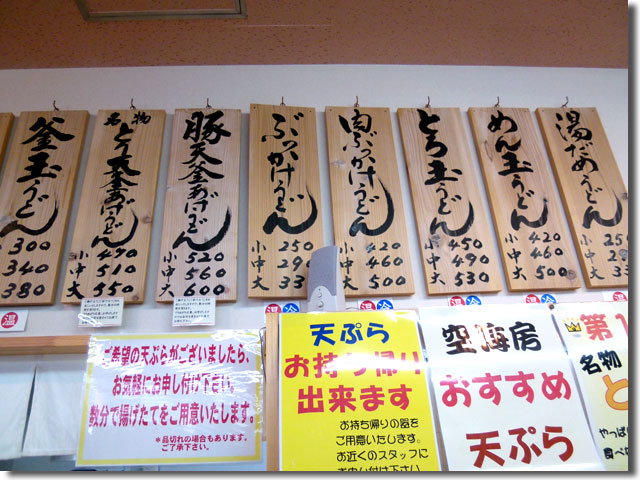 釜玉うどん
300
340
380
名物
とり天釜あげうどん
小 470
中 510
大 550
豚天釜あげうどん
小 520
中 560
大 600
ぶっかけうどん
小 250
中 290
大 33
肉ぶっかけうどん
小 420
中 460
大 500
とろ玉うどん
小 450
中 490
大 530
めん玉うどん
小 420
中 460
大 500
湯だめうどん
小 250
中 29
大 33
温
温 冷
温 冷
温 冷
温 冷
ご希望の天ぷらがございましたら、
お気軽にお申し付け下さい。
数分で揚げたてをご用意いたします。
*品切れの場合もあります。
ご了承下さい。
天ぷら
お持ち帰り
出来ます
お持ち帰りの器を
ご用意いたします。
お近くのスタッフに
お申し付け下さい
空海房
おすすめ
天ぷら
第1
名物
と
やっぱ
食べ